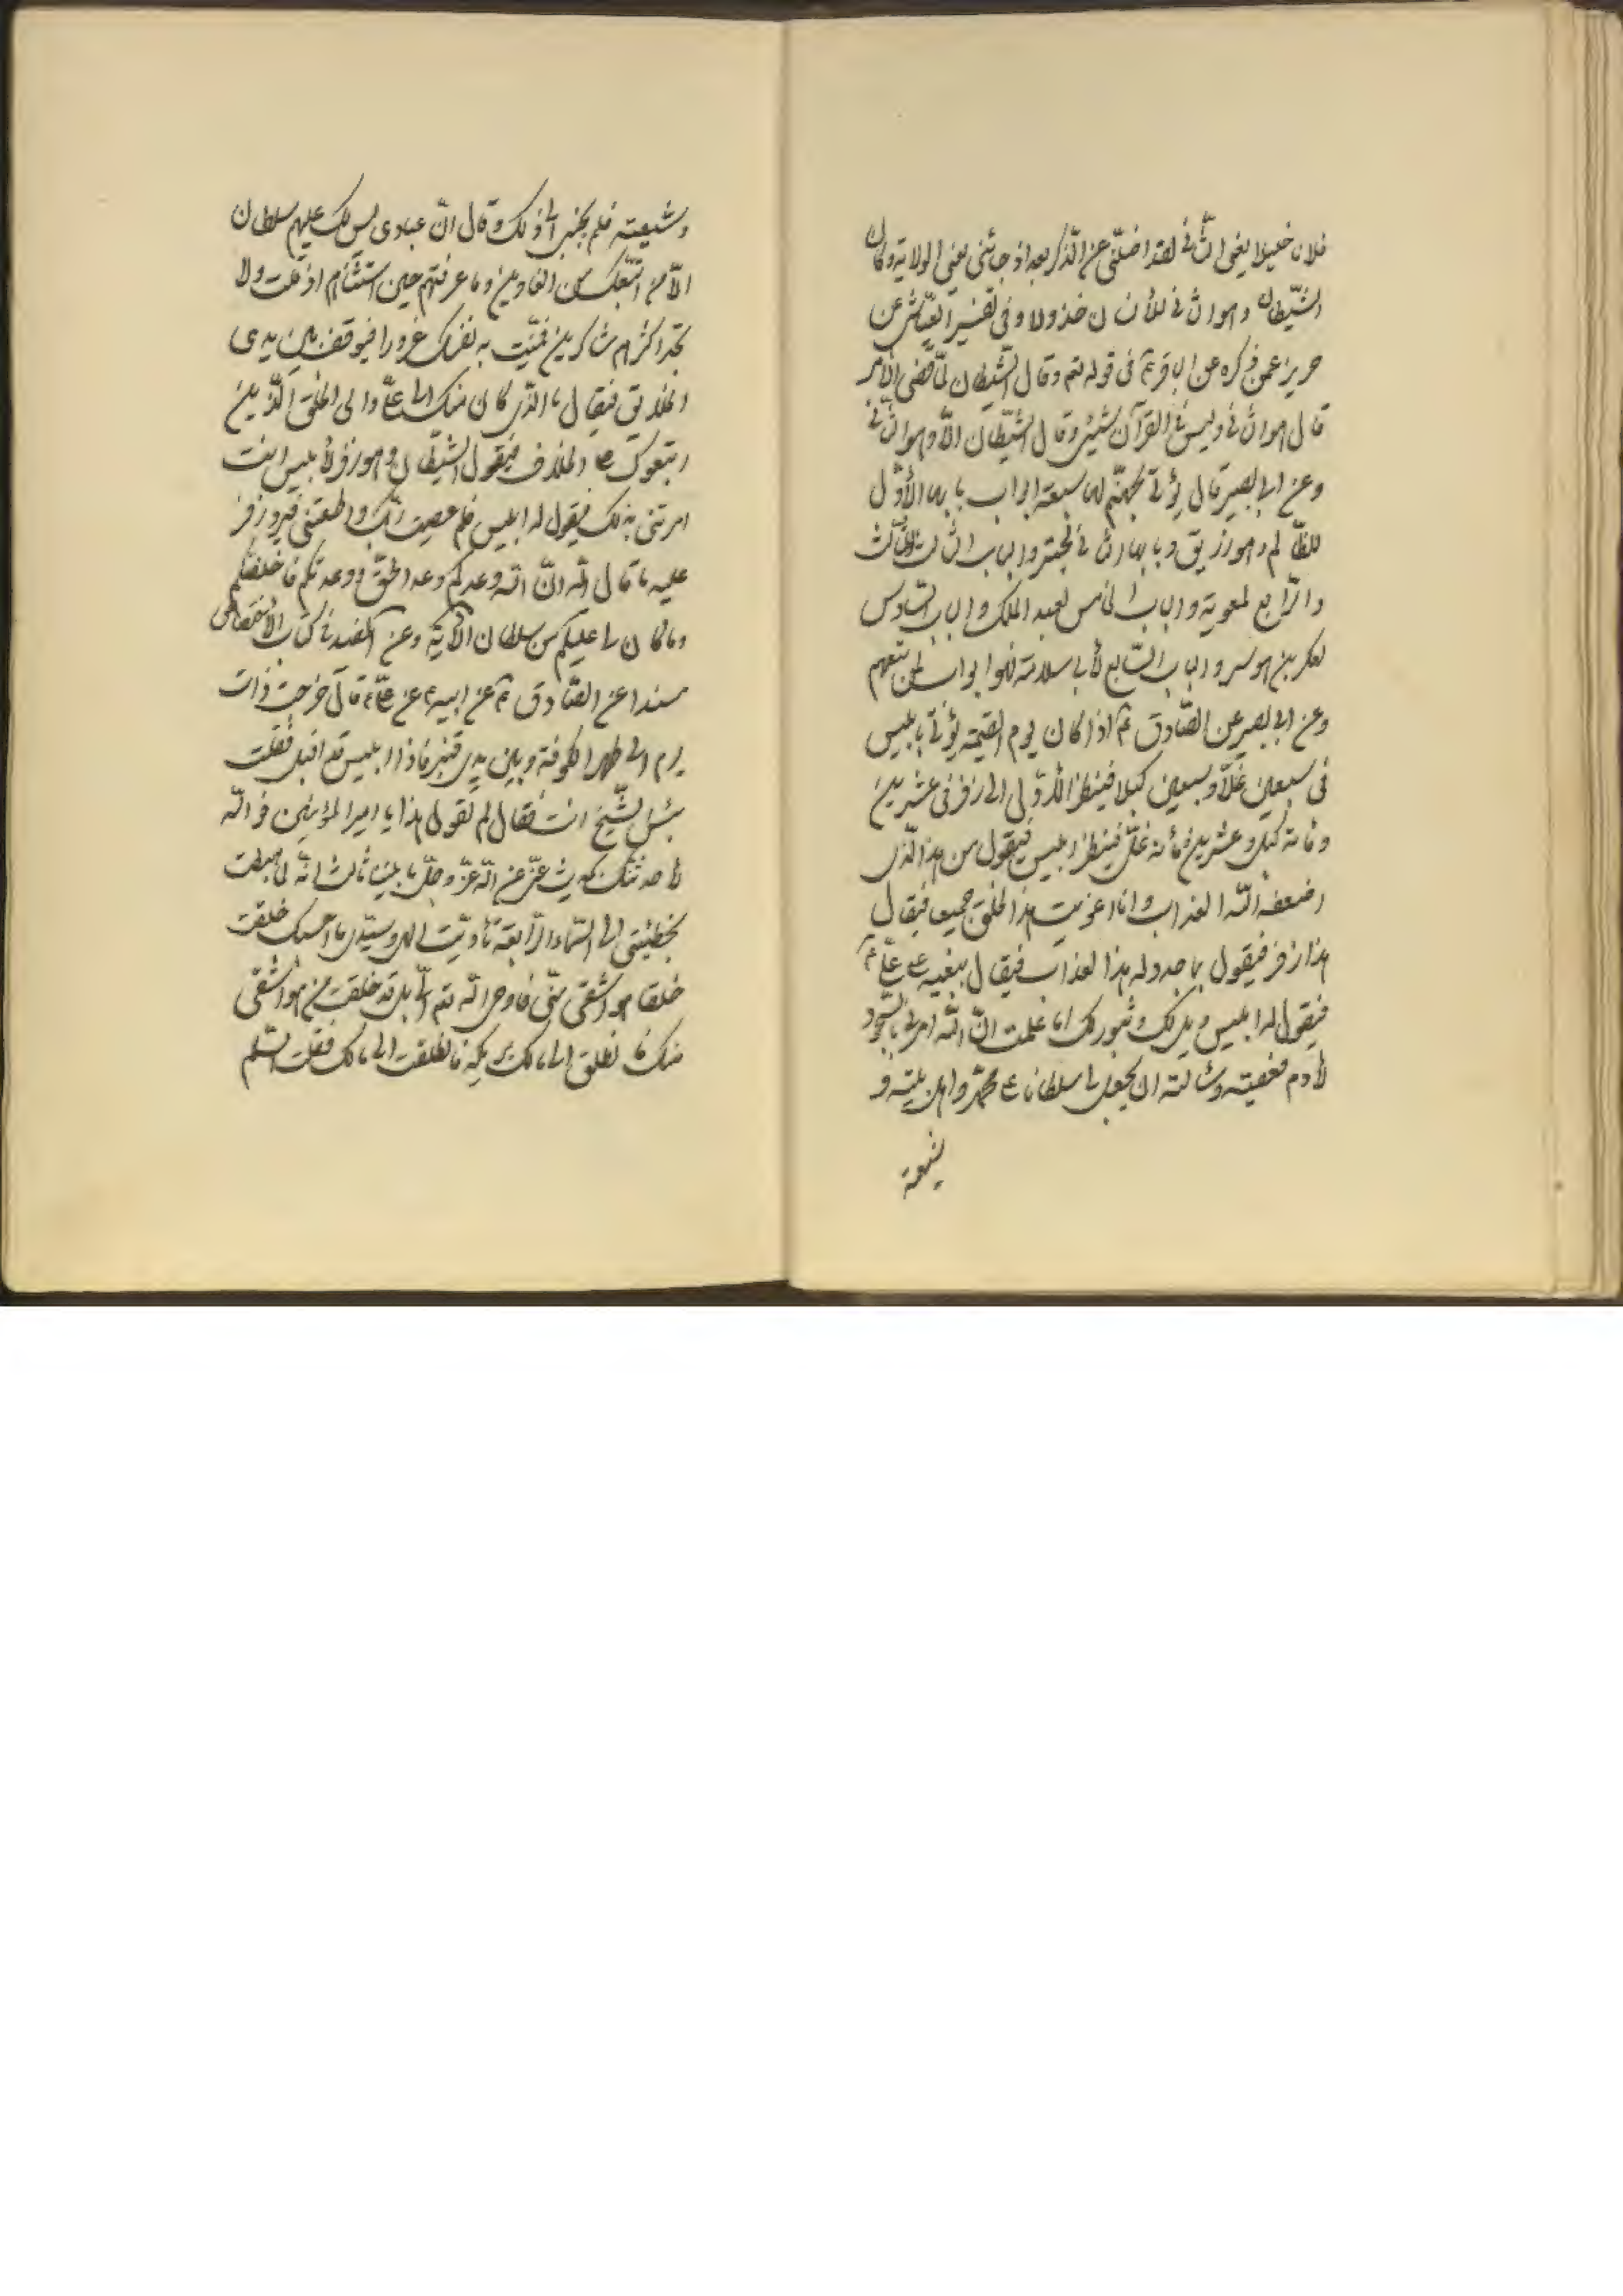 فلان خليلا يعني الثاني لقد اضلني عن الذكر بعد اذ جائني يعني الولاية وكان
الشيطان وهو الثاني للأنسان خذولا وفي تفسير العياشي عن
حريز عمن ذكره عن الباقر ع في قوله تع وقال الشيطان لما قضي الأمر
قال هو الثاني وليس في القرآن شيئ وقال الشيطان الا وهو الثاني
وعن ابي بصير قال يؤتى بجهنم لها سبعة ابواب بابها الأول
للظالم وهو زريق وبابها الثاني لحبتر والباب الثالث للثالث
والرابع لمعوية والباب الخامس لعبد الملك والباب السادس
لعكر بن هوسر والباب السابع لأبي سلامة فهو ابواب لمن تبعهم
وعن ابي بصير عن الصادق ع اذا كان يوم القيمة يؤتى بابليس
في سبعين غلا وسبعين كبلا فينظر الأول الى زفر في عشرين
ومائة كبل وعشرين ومائة غل فينظر ابليس فيقول من هذا الذي
اضعفه الله العذاب وانا اغويت هذا الخلق جميعا فيقال
هذا زفر فيقول بما جدد له هذا العذاب فيقال ببغيه على علي ع
فيقول له ابليس ويل لك وثبور لك اما علمت ان الله امرني بالسجود
لأدم فعصيته وسألته ان يجعل لي سلطانا على محمد واهل بيته و
شيعته
وشيعته فلم يجبني الى ذلك وقال ان عبادي ليس لك عليهم سلطان
الا من اتبعك من الغاوين وما عرفتهم حين استثناهم اذ قلت ولا
تجد اكثرهم شاكرين فمنيت به نفسك غرورا فيوقف بين يدي
الخلائق فيقال ما الذي كان منك الى علي والى الخلق الذين
اتبعوك على الخلاف فيقول الشيطان وهو زفر لأبليس انت
امرتني بذلك فيقول له ابليس فلم عصيت ربك واطعتني فيرد زفر
عليه ما قال الله ان الله وعدكم وعد الحق ووعدتكم فاخلفتكم
وما كان لي عليكم من سلطان الآية وعن المفيد في كتاب الأختصاص
مسندا عن الصادق ع عن ابيه ع عن علي ع قال خرجت ذات
يوم الى ظهر الكوفة وبين يدي قنبر فاذا ابليس قد اقبل فقلت
بئس الشيخ انت فقال لم تقول هذا يا امير المؤمنين فو الله
لأحدثنك بحديث عني عن الله عز وجل ما بيننا ثالث انه لما هبطت
بخطيئتي الى السماء الرابعة ناديت الهي وسيدي ما احسبك خلقت
خلقا هو اشقى مني فاوحى الله تع الي بل قد خلقت من هو اشقى
منك فانطلق الى مالك يريكه فانطلقت الى مالك فقلت السلم